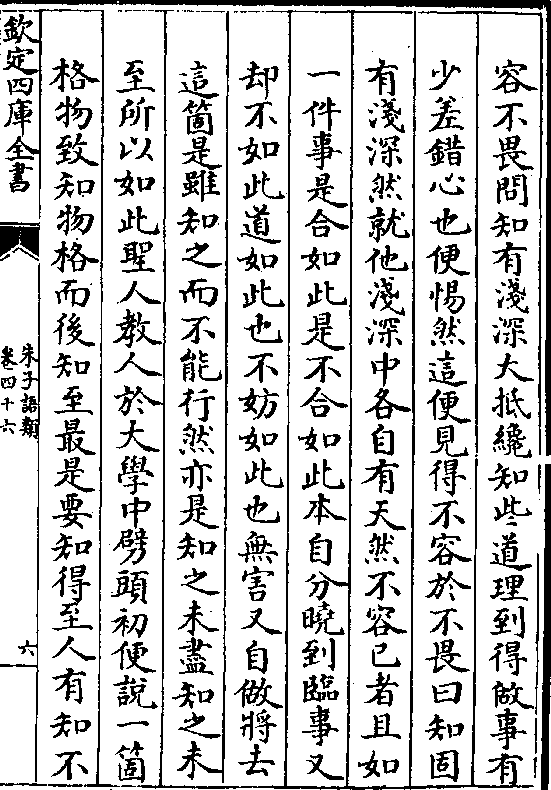 容不畏問知有淺深大抵纔知些道理到得做事有
少差錯心也便惕然這便見得不容於不畏曰知固
有淺深然就他淺深中各自有天然不容已者且如
一件事是合如此是不合如此本自分曉到臨事又
却不如此道如此也不妨如此也無害又自做將去
這箇是雖知之而不能行然亦是知之未盡知之未
至所以如此聖人教人於大學中劈頭初便說一箇
格物致知物格而後知至最是要知得至人有知不
欽定四庫全書
朱子語類
卷四十六
六